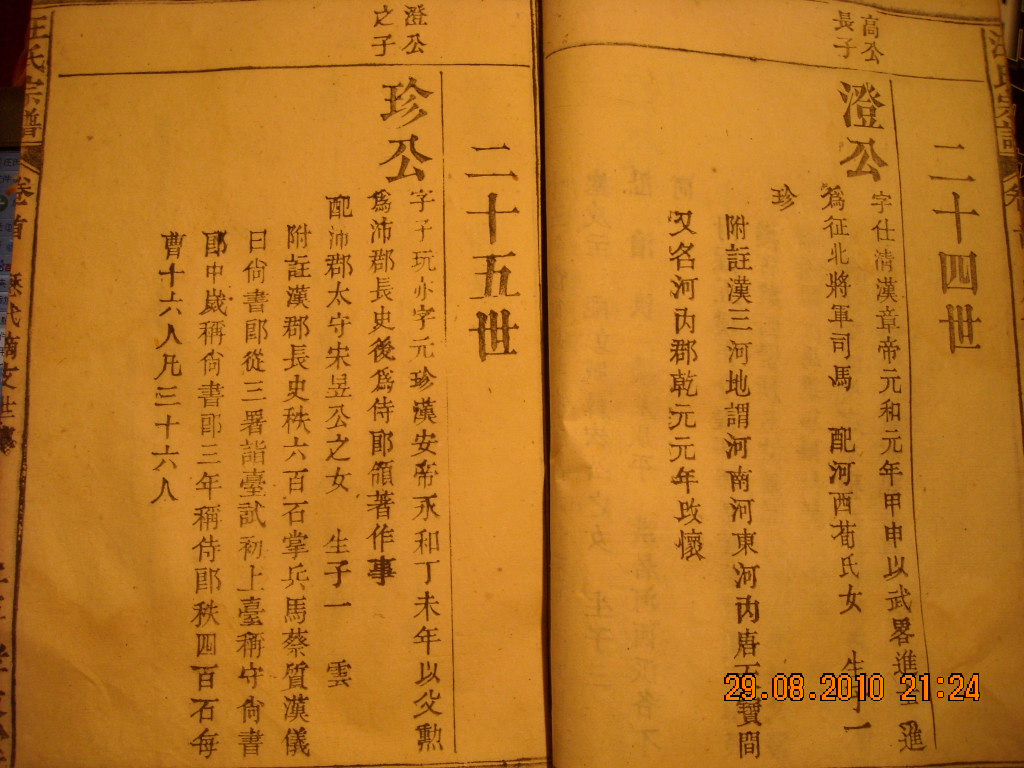 二十四世
高公
長子
澄公
字仕清漢章帝元和元年甲申以武畧進士進
爲征北將軍司馬 配河西荀氏女 生子一
珍
附註漢三河地謂河南河東河內唐天寶間
又名河內郡乾元元年改懷
二十五世
澄公
之子
珍公
字子玩亦字元珍漢安帝永和丁未年以父勲
爲沛郡長史後爲侍郎領著作事
配沛郡太守宋昱公之女 生子一 雲
附註漢郡長史秩六百石掌兵馬蔡質漢儀
曰尙書郎從三署詣臺試初上臺稱守尙書
郎中歲稱尙書郎三年稱侍郎秩四百石每
曹十六人凡三十六人
汪氏宗譜 卷首 歷代 世
29.08.2010 21:24